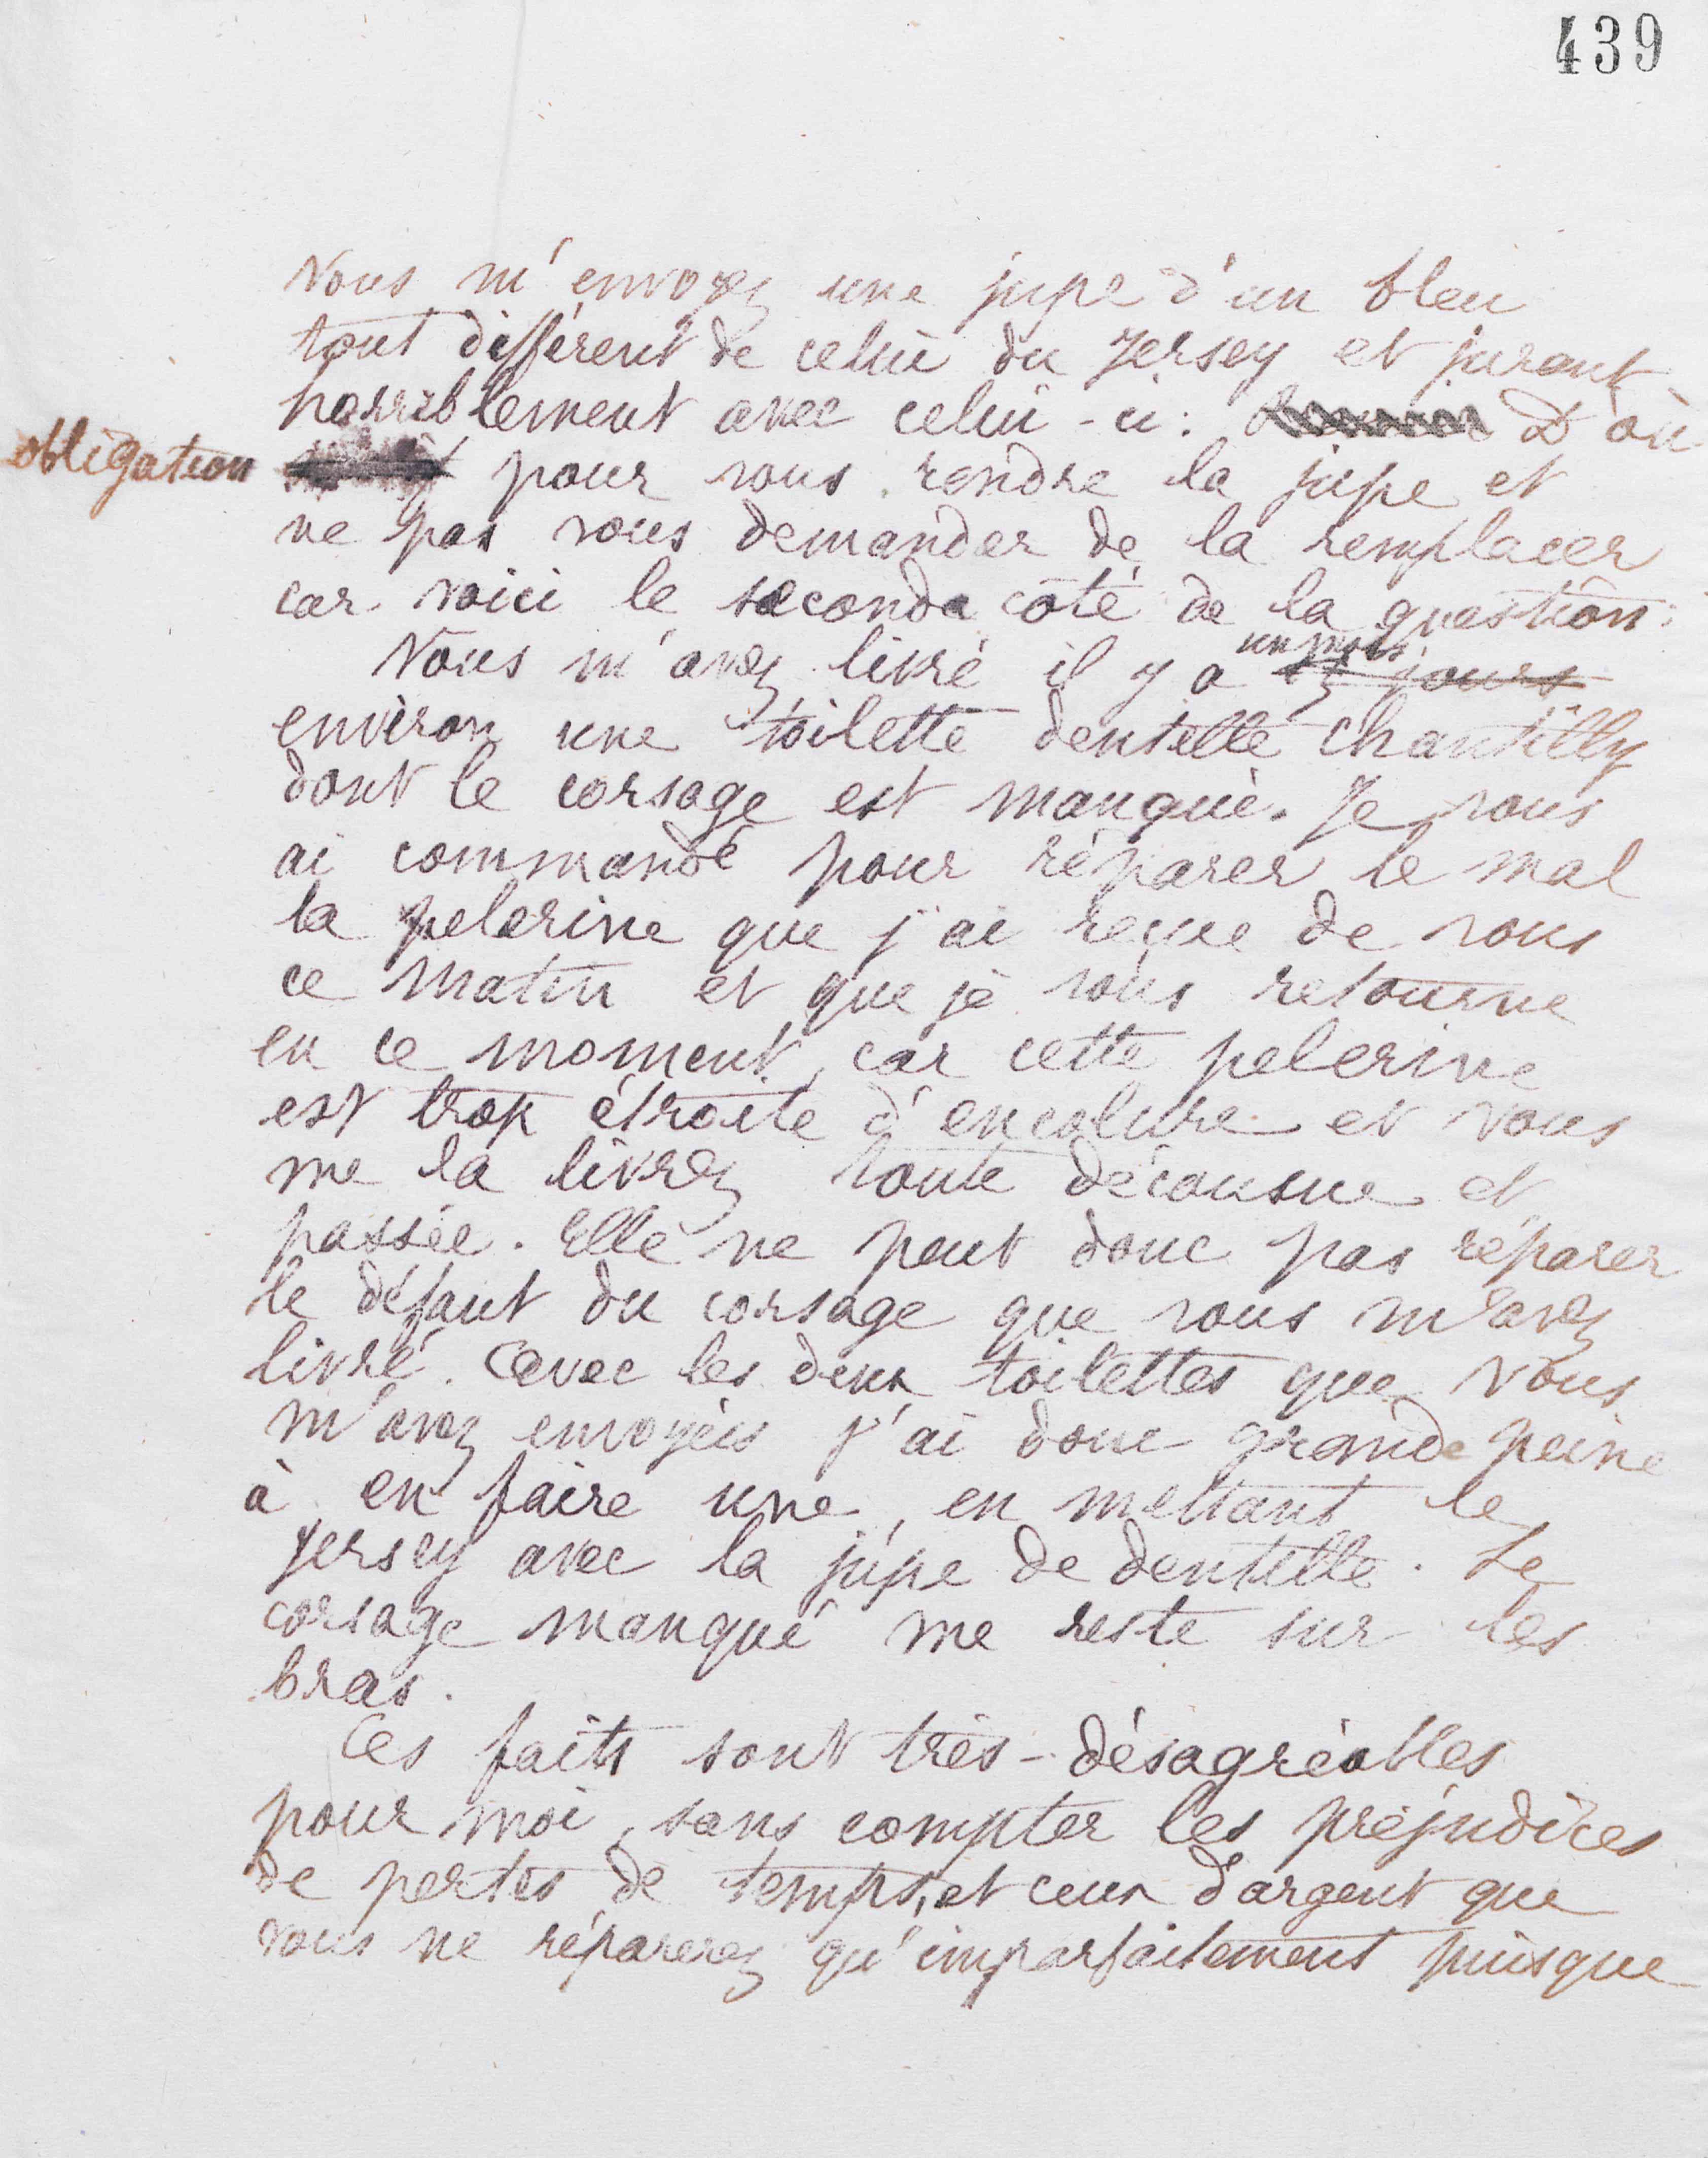 439
Vous m'envoyez une jupe d'un bleu
tout différent de celui du Jersey et jurant
horriblement avec celui-ci. D'où
obligation pour vous rendre la jupe et
ne pas vous demander de la remplacer
car voici le seconde côté de la question:
un mois
Vous m'avez livré il y a 15 jours
environ une toilette dentelle chantilly
dont le corsage est manqué. Je vous
ai commandé pour réparer le mal
la pelerine que j'ai reçue de vous
ce matin et que je vous retourne
en ce moment, car cette pelerine
est trop étroite d'encolure et vous
me la livrez toute décousue et
passée. Elle ne peut donc pas réparer
le défaut du corsage que vous m'avez
livré. Avec les deux toilettes que vous
m'avez envoyées j'ai donc grande peine
à en faire une, en mettant le
Jersey avec la jupe de dentelle. Le
corsage manqué me reste sur les
bras.
Ces faits sont très-désagréables
pour moi, sans compter les préjudices
de pertes de temps, et ceux d'argent que
vous ne réparerez qu'imparfaitement puisque